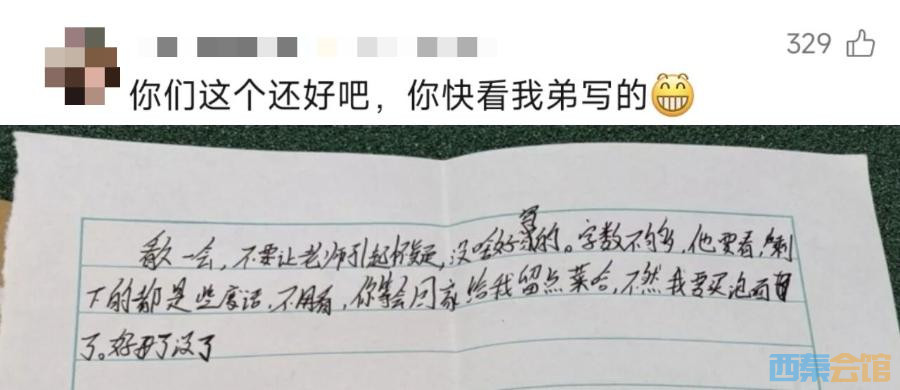 329
你们这个还好吧，你快看我弟写的😁
看久一会，不要让老师引起怀疑，没啥好写的。字数不够多，他要看，剩
下的都是些废话，不用看，你等会回家给我留点菜哈，不然我要买泡面
了。好了没了
西秦会馆